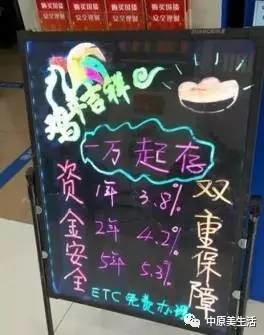 购买国债
安全理财
购买国债
安全理财
购买国债
安全理财
鸡年吉祥
一万起存
资金安全
1年 3.8%
2年 4.2%
5年 5.3%
双重保障
ETC 免费办理
中原美生活